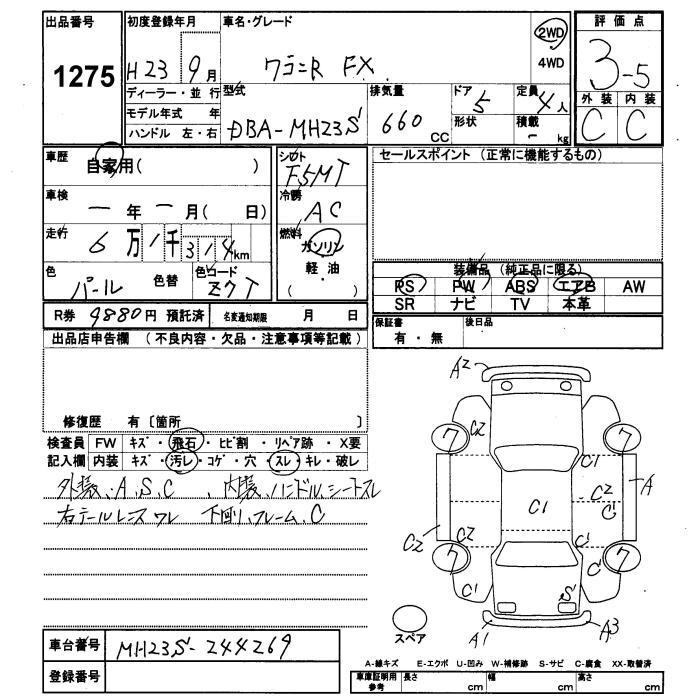 出品番号
1275
初度登録年月
H23 9月
車名・グレード
ワゴンR FX
2WD
4WD
評価点
3-5
外装 内装
C C
ディーラー・並行
モデル年式 年
ハンドル 左・右
型式
DBA-MH23S
排気量
660 CC
ドア 5
形状
定員 4人
積載 - kg
車歴
自家用( )
車検
一年 一月( 日)
走行
6万1千314km
色
パール
色替
色コード
Z7T
シフト
F5MT
冷房
AC
燃料
ガソリン
軽・油
( )
セールスポイント (正常に機能するもの)
装備品 (純正品に限る)
PS PW ABS エアB AW
SR ナビ TV 本革
R券 9880円 預託済
名変通知期限 月 日
保証書
有・無
後日品
出品店申告欄 (不良内容・欠品・注意事項等記載)
修復歴 有〔箇所 〕
検査員 FW キズ・飛石・ヒビ割・リペア跡・X要
記入欄 内装 キズ・汚レ・コゲ・穴・スレ・キレ・破レ
外装、A、S、C 、内装、ハンドル、シートスレ
右テールレンズワレ 下廻リ、フレーム、C
A2
C2
ワ
ワ
C1
A
C2
C1
C1
C2
C2
C1
ワ
ワ
C1
C1
S
A1
A3
スペア
車台番号
MH23S-244269
登録番号
A-線キズ E-エクボ U-凹み W-補修跡 S-サビ C-腐食 XX-取替済
車庫証明用
参考
長さ cm
幅 cm
高さ cm